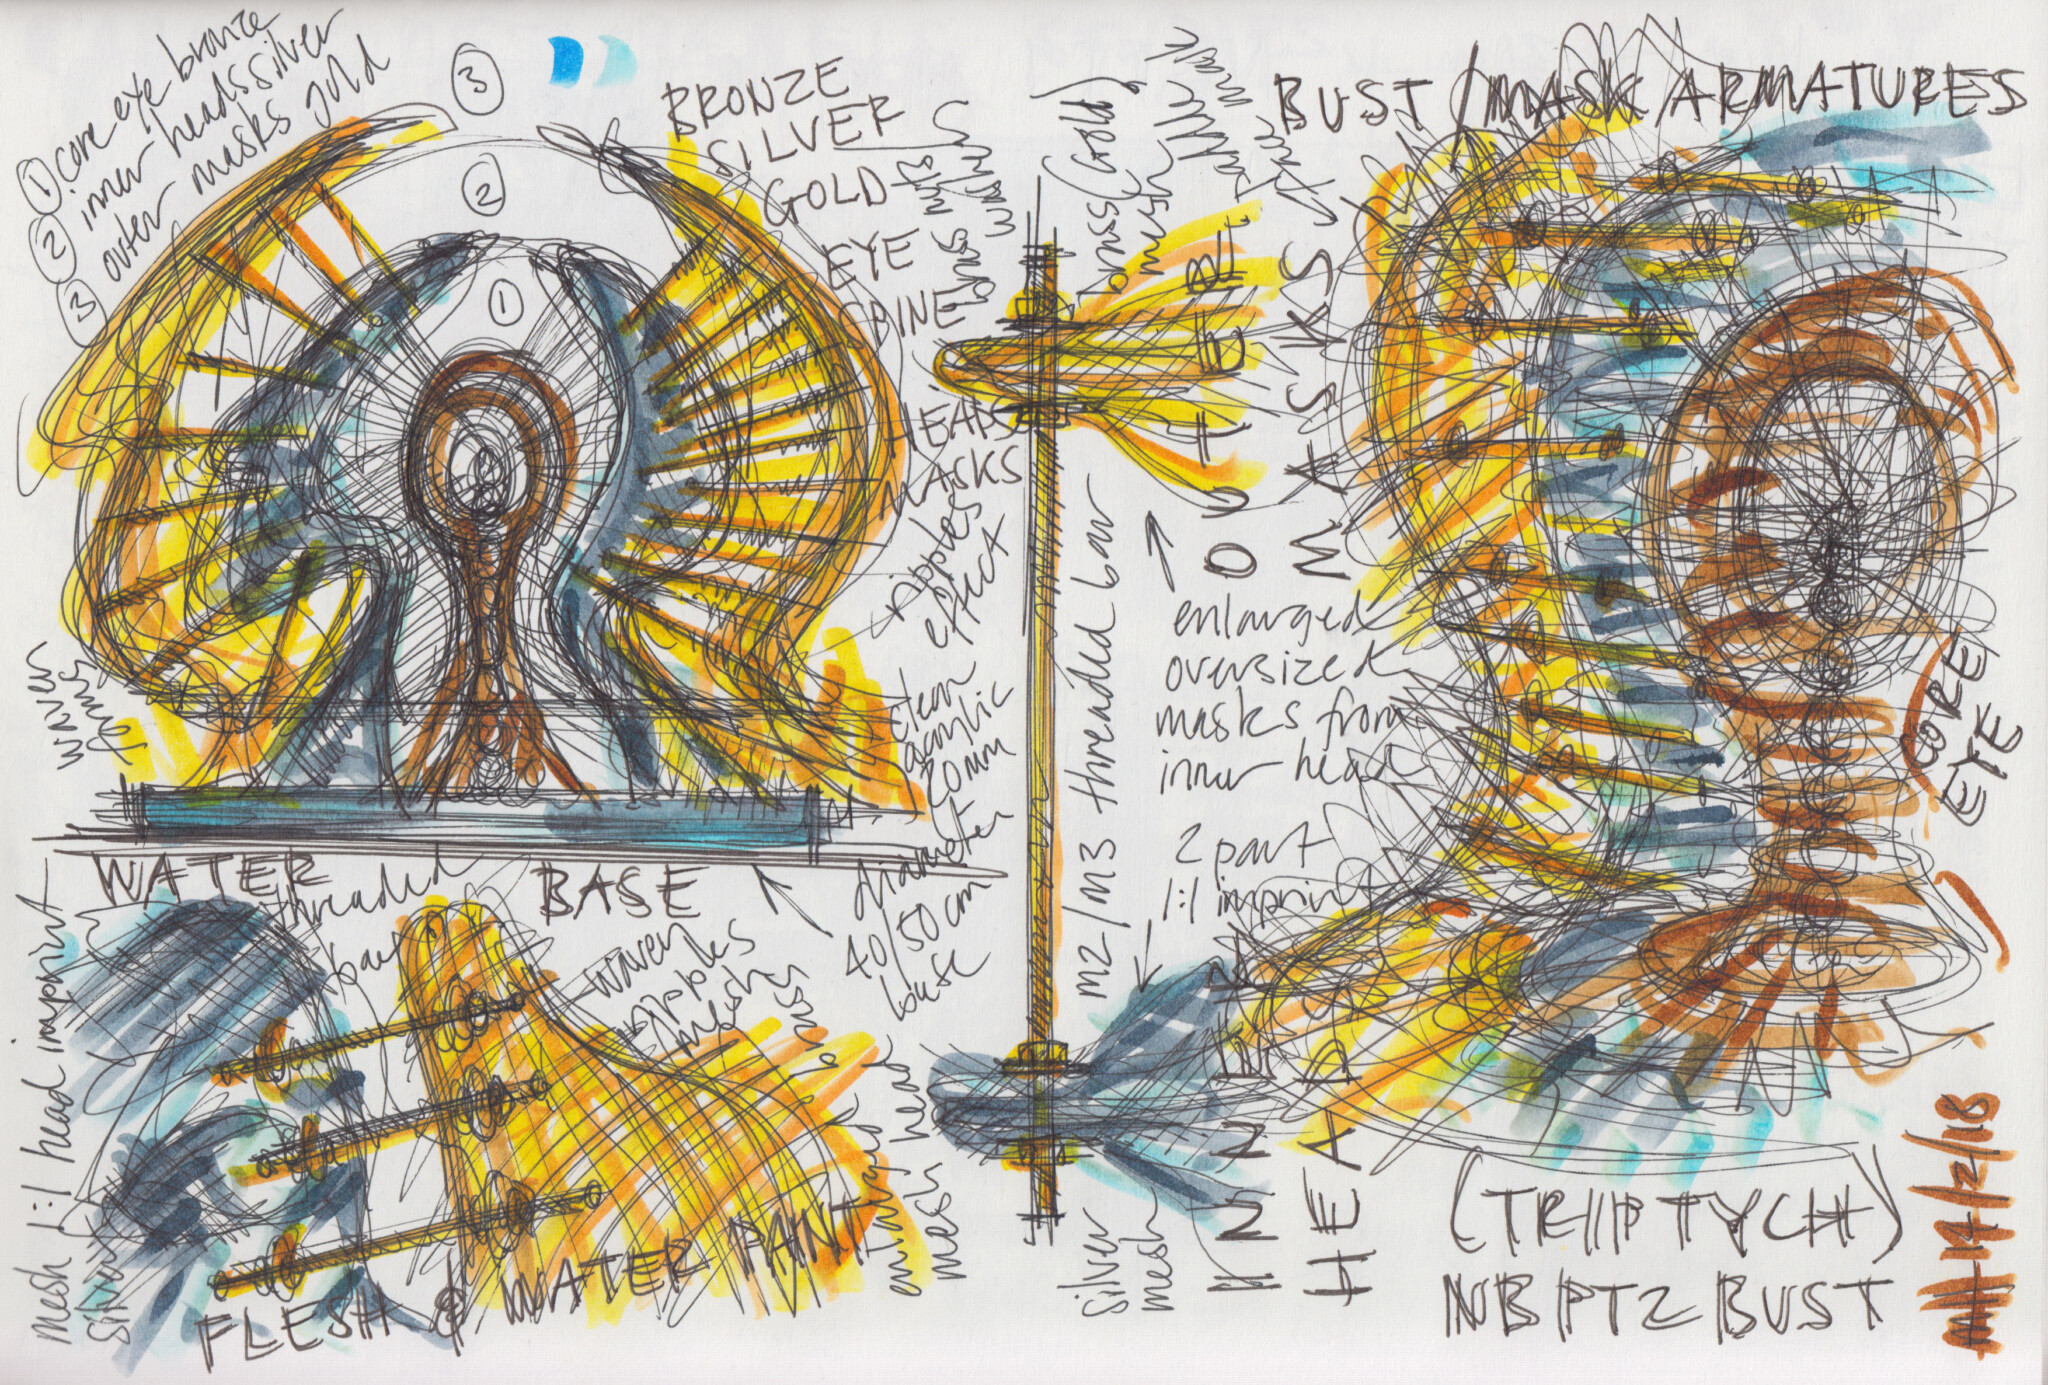 ① core eye bronze
② inner heads silver
③ outer masks gold
③
②
①
BRONZE
SILVER
GOLD
EYE
SPINE
HEADS
MASKS
ripples
effect
waver
forms
clear
acrylic
20mm
diameter
40/50cm
base
WATER BASE
mesh 1:1 head imprint
silver
threaded
bar
waven
ripples
meshes
brass
enlarged
mesh head
FLESH @ WATER PAINT
brass nuts
washer
brass (gold)
mesh
M2/M3 threaded bar
silver
mesh
OUTER
MASKS
enlarged
oversized
masks from
inner head
2 part
1:1 imprint
INNER
HEAD
BUST/MASK/ARMATURES
CORE
EYE
(TRIPTYCH)
NB PT2 BUST
MH 14/2/18